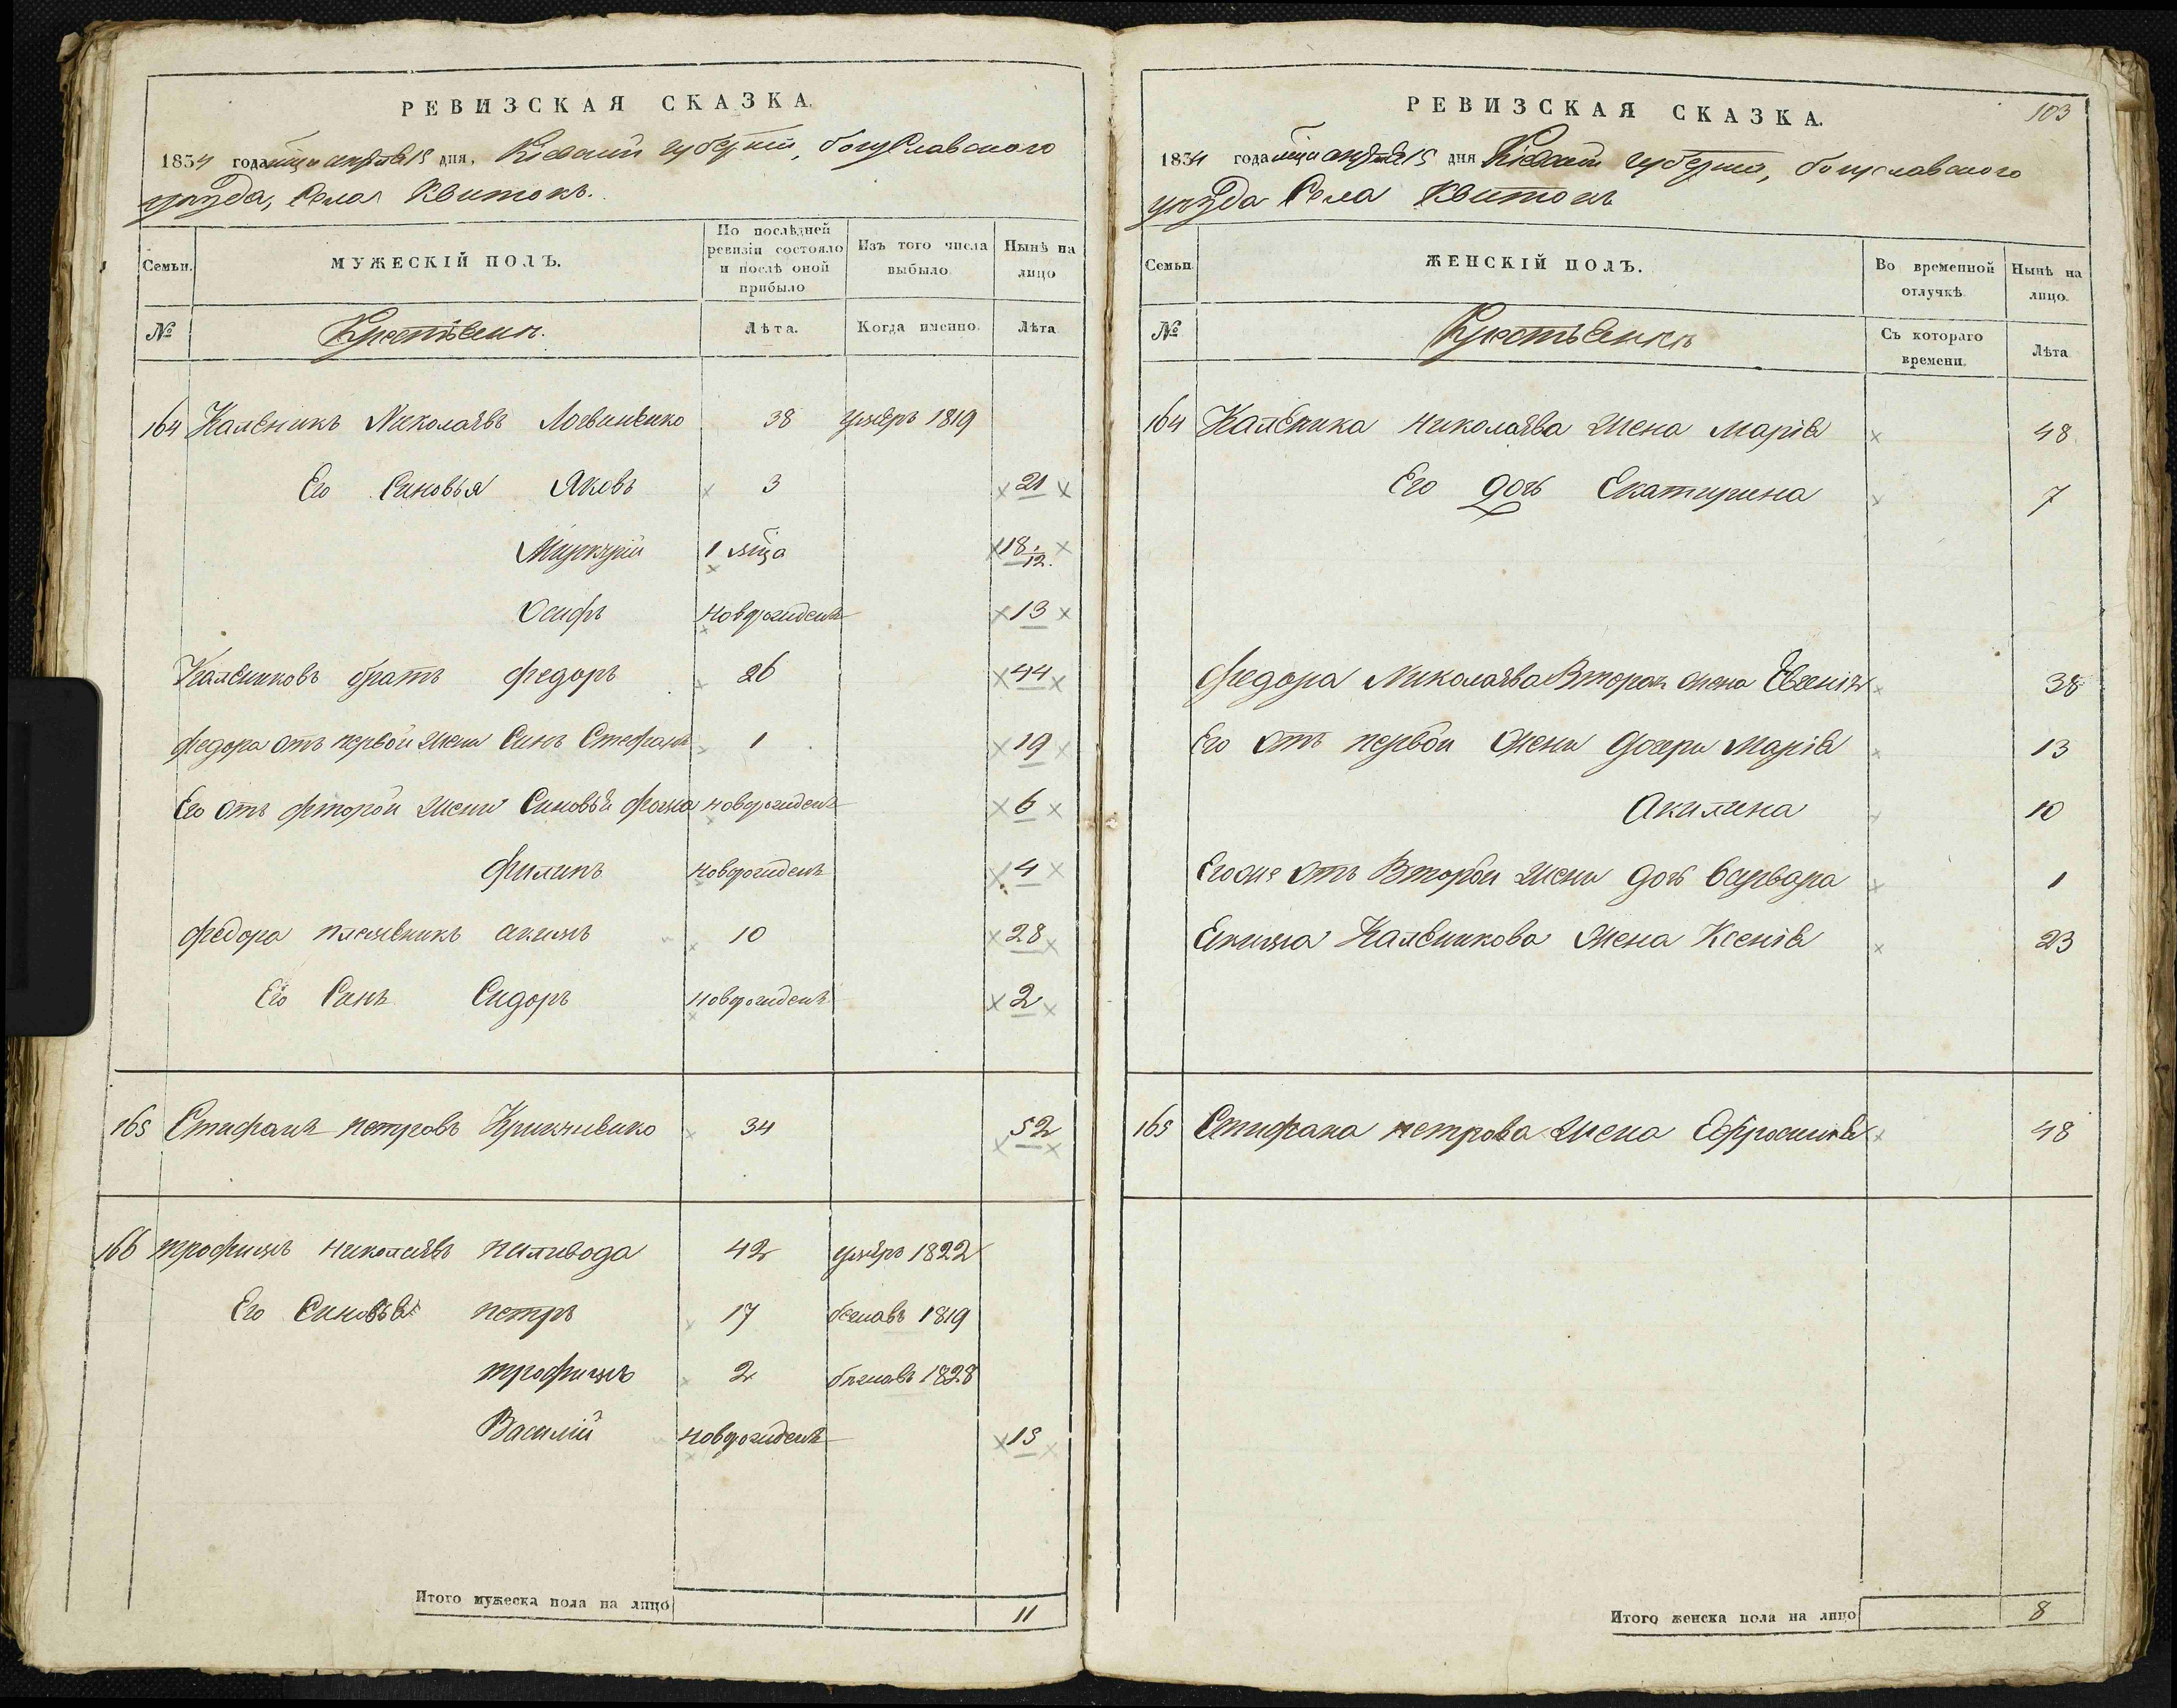 РЕВИЗСКАЯ СКАЗКА.
1834 года мца апреля 15 дня, Кіевской губерніи, богуславского
уезда, Села Квитокъ.
Семьи.
МУЖЕСКІЙ ПОЛЪ.
По послѣдней ревизіи состояло и послѣ оной прибыло
Изъ того числа выбыло.
Нынѣ на лицо
№
Лѣта.
Когда именно.
Лѣта
164 Калѣникъ Николаевъ 38 умеръ 1819
Его Синовья Яковъ 3 21
Миркурій 1 мца 18 1/12.
Осифъ новорожденъ 13
Калѣниковъ братъ федоръ 26 44
федора отъ первой жени Синъ Стефанъ 1 19
Его отъ фторой жени Синовья фома новорожденъ 6
филипъ новорожденъ 4
федора племѣникъ акимъ 10 28
Его Синъ Сидоръ новорожденъ 2
165 Стифанъ петровъ 34 52
166 трофимъ николаевъ паливода 42 умеръ 1822
Его Синовья петръ 17 бежавъ 1819
трофимъ 2 бежавъ 1828
Василій новорожденъ 15
Итого мужеска пола на лицо 11
РЕВИЗСКАЯ СКАЗКА.
103
1834 года мца апреля 15 дня Кіевской губерніи, богуславского
уезда Села Квитокъ
Семьи.
ЖЕНСКІЙ ПОЛЪ.
Во временной отлучкѣ.
Нынѣ на лицо.
№
Съ котораго времени.
Лѣта
164 Калѣника николаева жена Марія 48
Его дочь Екатирина 7
федора Николаева Вторая жена Евгенія 38
Его отъ первой жени дочери Марія 13
Акилина 10
Егоже отъ Второй жени дочь варвара 1
Екима Калѣникова жена Ксенія 23
165 Стифана петрова жена Ефросинія 48
Итого женска пола на лицо 8